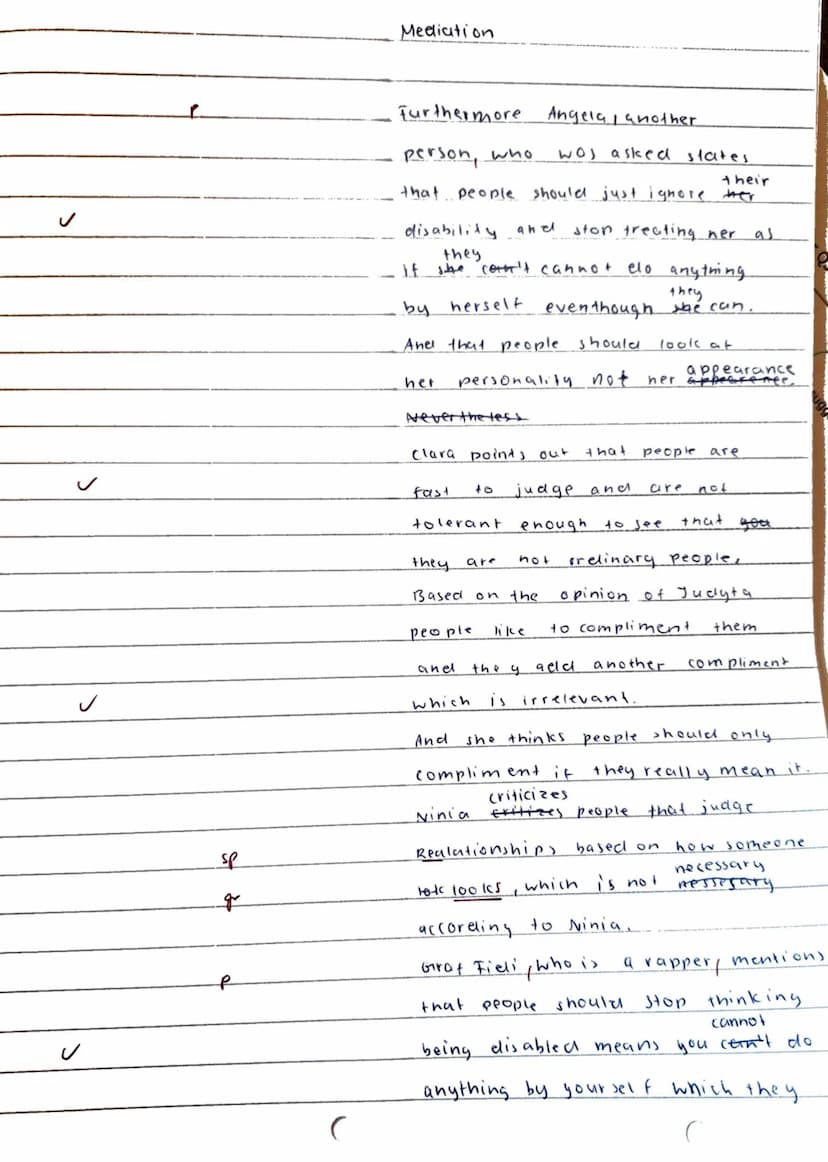 Mediation
r Furthermore Angela, another
person, who was asked states
their
that people should just ignore her
✓ disability and stop treating her as
they
if she can't cannot do anything
they
by herself eventhough she can.
And that people should look at
appearance
her personality not her appearence.
Never the less
Clara points out that people are
✓ fast to judge and are not
tolerant enough to see that you
they are not ordinary people.
Based on the opinion of Judyta
people like to compliment them
and they add another compliment
✓ which is irrelevant.
And she thinks people should only
compliment if they really mean it.
criticizes
Ninia critizes people that judge
sp Realationships based on how someone
necessary
gr looks, which is not nessesary
according to Ninia.
Graf Fidi, who is a rapper, mentions
p that people should stop thinking
cannot
✓ being disabled means you can't do
anything by yourself which they